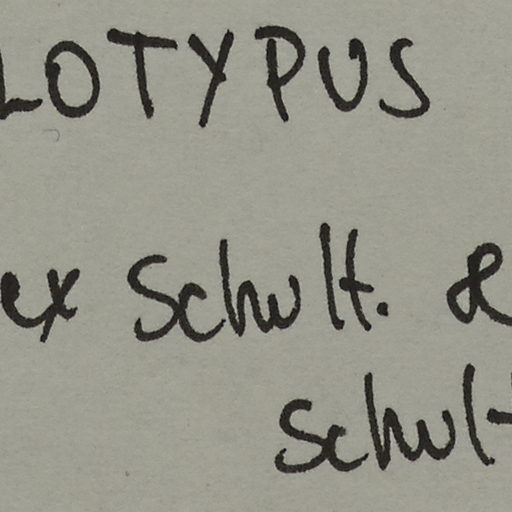 LOTYPUS
ex Schult. &
Schult